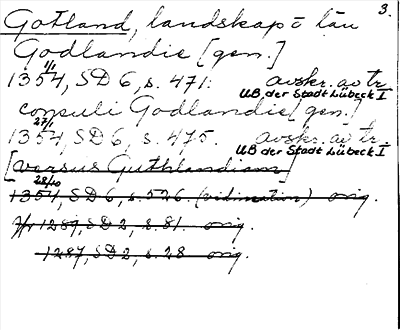 3.
Gotland, landskap o län
Godlandie [gen.]
1354, 1/1 SD 6, s. 471. avskr. av tr.
UB der Stadt Lübeck I
consuli Godlandie [gen.]
1354, 27/1 SD 6, s. 475. avskr. av tr.
UB der Stadt Lübeck I
[versus Guthlandiam]
1354, 28/10 SD 6, s. 526. (vidimation) orig.
1289, SD 2, s. 81. orig.
1287, SD 2, s. 28 orig.